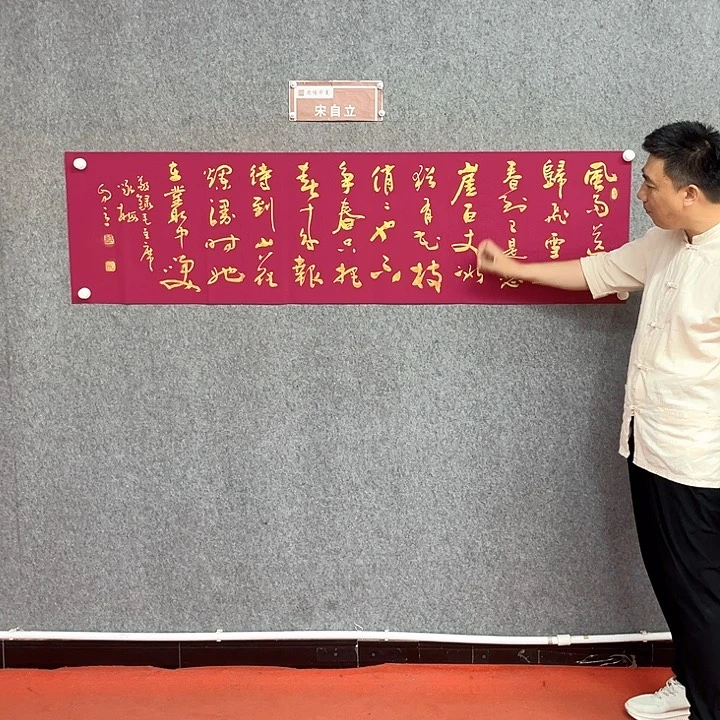 宋自立
風雨送
歸飛雪
春到已是懸
崖百丈冰
猶有花枝
俏〻也不
爭春只把
春來報
待到山花
爛漫時她
在叢中笑
敬錄毛主席
詠梅
自立